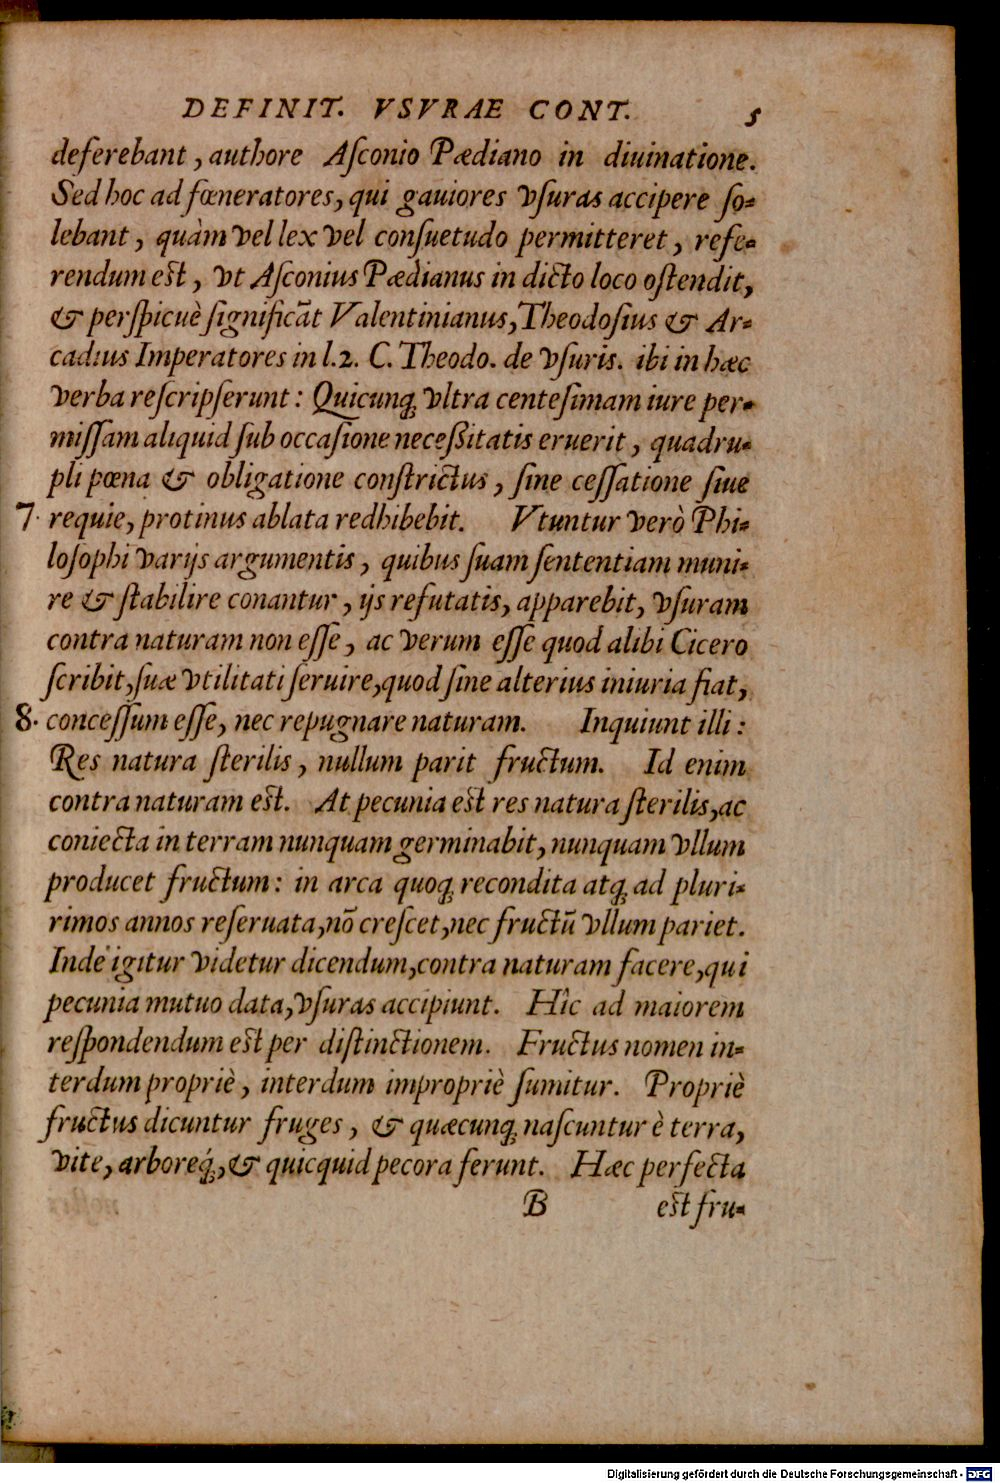 DEFINIT. VSVRAE CONT. 5
deferebant, authore Aſconio Pædiano in diuinatione.
Sed hoc ad fœneratores, qui gauiores vſuras accipere ſo-
lebant, quàm vel lex vel conſuetudo permitteret, refe-
rendum eſt, vt Aſconius Pædianus in dicto loco oſtendit,
& perſpicuè ſignificāt Valentinianus, Theodoſius & Ar-
cadius Imperatores in l.2. C. Theodo. de vſuris. ibi in hæc
verba reſcripſerunt: Quicunq; vltra centeſimam iure per-
miſſam aliquid ſub occaſione neceßitatis eruerit, quadru-
pli pœna & obligatione conſtrictus, ſine ceſſatione ſiue
7. requie, protinus ablata redhibebit. Vtuntur verò Phi-
loſophi varijs argumentis, quibus ſuam ſententiam muni-
re & ſtabilire conantur, ijs refutatis, apparebit, vſuram
contra naturam non eſſe, ac verum eſſe quod alibi Cicero
ſcribit, ſuæ vtilitati ſeruire, quod ſine alterius iniuria fiat,
8. conceſſum eſſe, nec repugnare naturam. Inquiunt illi:
Res natura ſterilis, nullum parit fructum. Id enim
contra naturam eſt. At pecunia eſt res natura ſterilis, ac
coniecta in terram nunquam germinabit, nunquam vllum
producet fructum: in arca quoq; recondita atq; ad pluri-
rimos annos reſeruata, nō creſcet, nec fructū vllum pariet.
Inde igitur videtur dicendum, contra naturam facere, qui
pecunia mutuo data, vſuras accipiunt. Hîc ad maiorem
reſpondendum eſt per diſtinctionem. Fructus nomen in-
terdum propriè, interdum impropriè ſumitur. Propriè
fructus dicuntur fruges, & quæcunq; naſcuntur è terra,
vite, arboreq́;, & quicquid pecora ferunt. Hæc perfecta
B eſt fru-
Digitalisierung gefördert durch die Deutsche Forschungsgemeinschaft - DFG